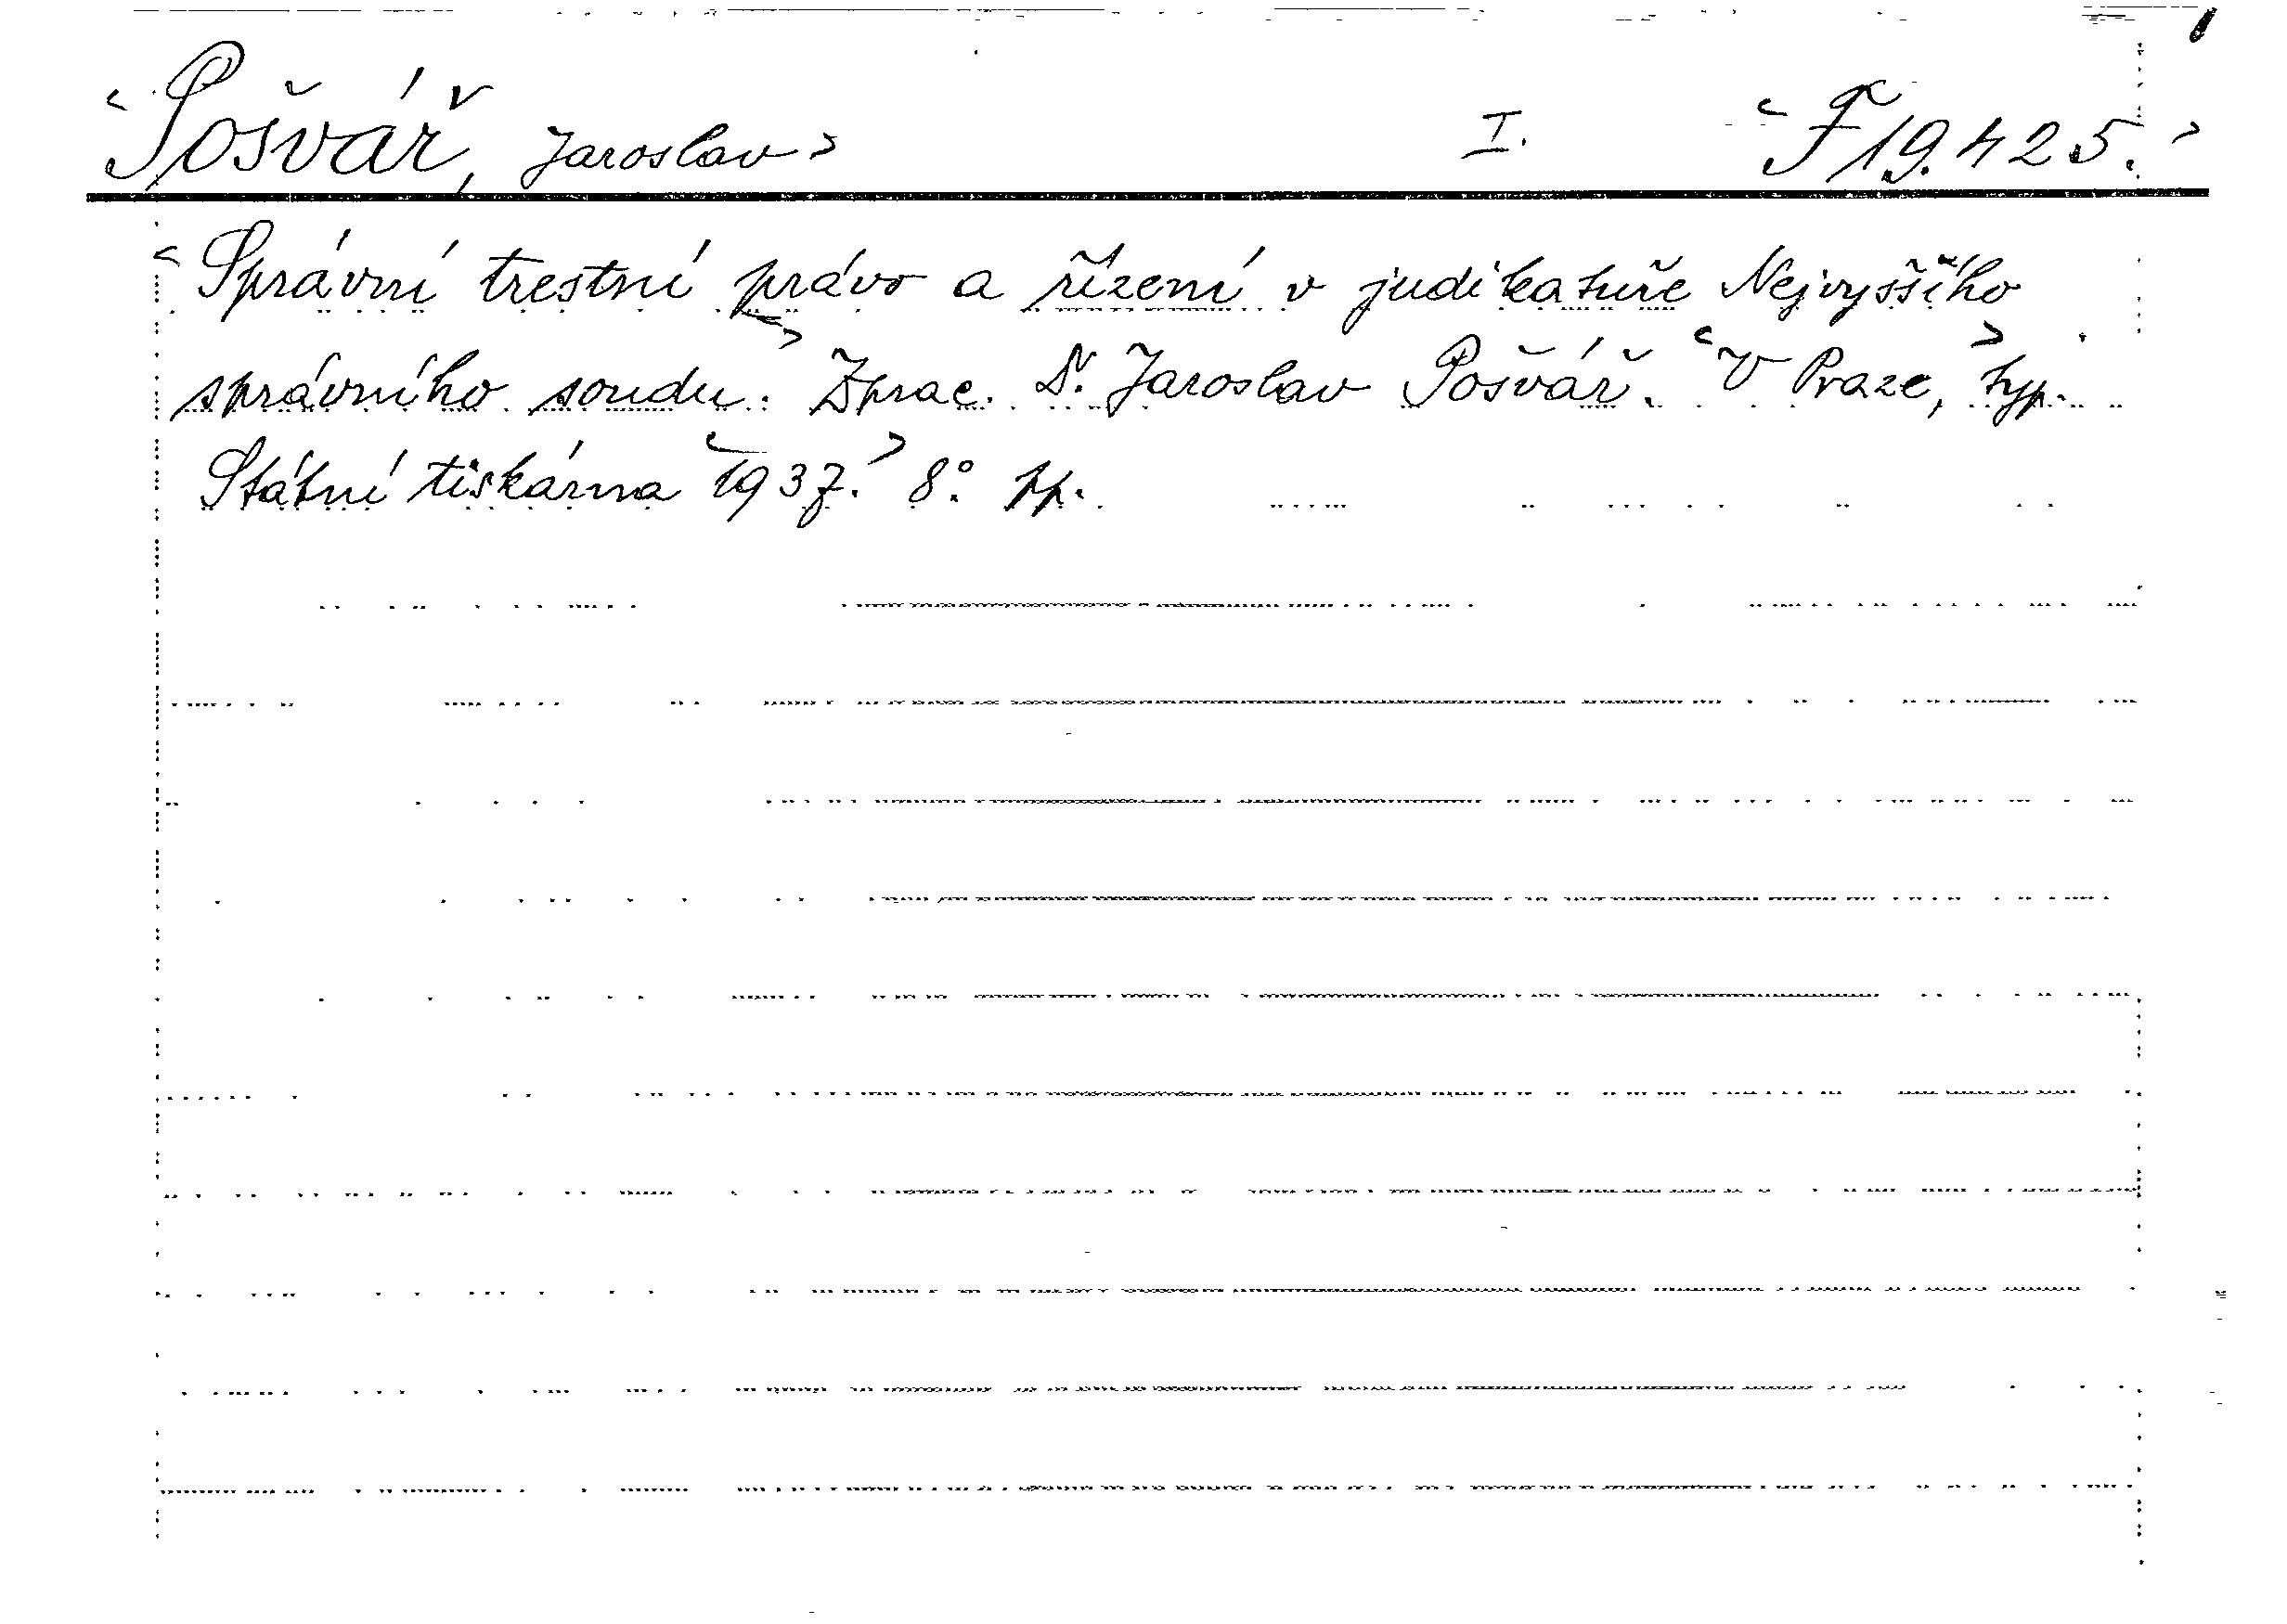 Pošvář, Jaroslav I. F 19.425.
Správní trestní právo a řízení v judikatuře Nejvyššího
správního soudu. Zprac. Dr. Jaroslav Pošvář. V Praze, typ.
Státní tiskárna 1937. 8°. pp.